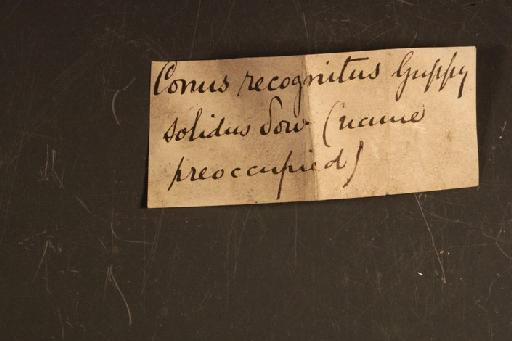 Conus recognitus Guppy
solidus Sow (name
preoccupied)